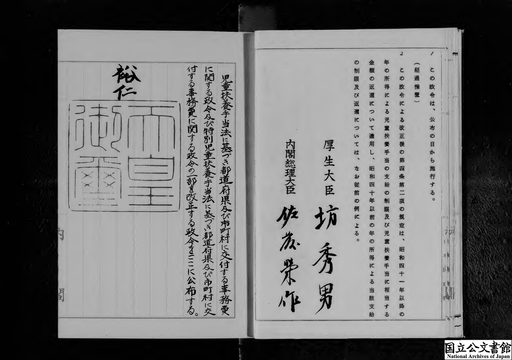 1 この政令は、公布の日から施行する。
(経過措置)
2 この政令による改正後の第四条第二項の規定は、昭和四十一年以降の
年の所得による児童扶養手当の支給の制限及び児童扶養手当に相当する
金額の返還について適用し、昭和四十年以前の年の所得による当該支給
の制限及び返還については、なお従前の例による。
厚生大臣 坊秀男
内閣総理大臣 佐藤榮作
児童扶養手当法に基づき都道府県及び市町村に交付する事務費
に関する政令及び特別児童扶養手当法に基づき都道府県及び市町村に交
付する事務費に関する政令の一部を改正する政令をここに公布する。
裕仁
天皇
御璽
内閣
国立公文書館
National Archives of Japan